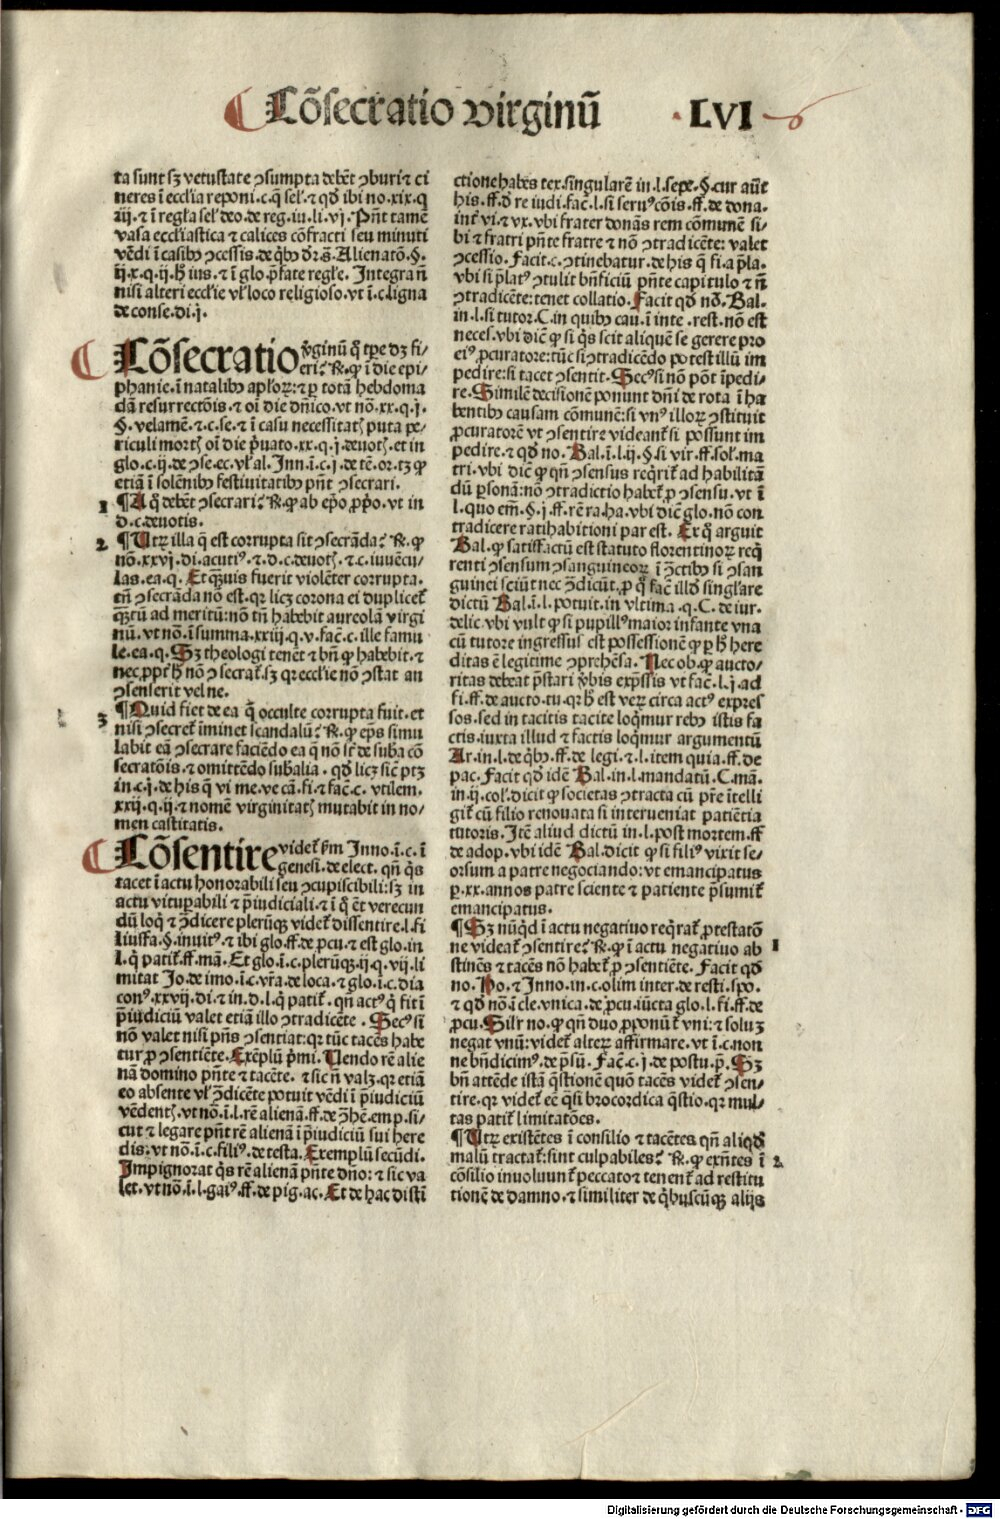 Cōsecratio virginū
LVI
ta sunt sꝫ vetustate ꝯsumpta debēt ꝯburi ⁊ ci
neres ī ecclīa reponi.c.
vasa eccl'iastica ⁊ calices cōfracti seu minuti
nisi alteri eccl'ie vl' loco religioso.vt ī.c.ligna
de conse.di.j.
Cōsecratio
phanie.ī natalibꝰ apl'oꝝ.⁊ ꝑ totā hebdoma
dā resurrectōis.⁊ oī die dn̄ico.vt nō.xx.q.j.
§.velamē.⁊.c.se.⁊ ī casu necessitatꝭ puta pe⸗
riculi mortꝭ oī die p̄uato.xx.q.j.deuotꝭ.et in
etiā ī solēnibꝰ festiuitatibꝰ pn̄t ꝯsecrari.
1
d.c.deuotis.
2
¶Utꝝ illa q̄ est corrupta sit ꝯsecrāda?
nō.xxvj.di.acutiꝰ.⁊.d.c.deuotꝭ.⁊.c.iuuēcu⸗
las.ea.q.Et q̄uis fuerit violēter corrupta.
tn̄ ꝯsecrāda nō est.qr licꝫ corona ei duplicet᷑
ad meritū:nō tn̄ habebit aureolā virgi
nū.vt nō.ī summa.xxiij.q.v.fac̄.c.ille famu
le.ea.q.Sꝫ theologi tenēt ⁊ bn̄ ꝙ habebit.⁊
ꝯsenserit vel ne.
3
¶Quid fiet de ea q̄ occulte corrupta fuit.et
nisi ꝯsecret᷑ īminet scandalū? ꝙ ep̄s simu
secratōis.⁊ omittēdo sub̄alia.
xxij.q.ij.⁊ nomē virginitatꝭ mutabit in no⸗
men castitatis.
Cōsentire videt᷑ ẜm Inno.ī.c.ī
genesi.de elect.qn̄ q̄s
tacet ī actu honorabili seu ꝯcupiscibili:sꝫ in
actu vitupabili ⁊ p̄iudiciali.⁊ ī q̄ ēt verecun
dū loq̄ ⁊ ꝯ̄dicere plerūqꝫ videt᷑ dissentire.l.fi
mitat Jo.de imo.ī.c.vr̄a.de loca.⁊ glo.ī.c.dia
p̄iudiciū valet etiā illo ꝯtradicēte.Secꝰ si
nō valet nisi p̄ns ꝯsentiat:qr tūc tacēs habe
tur ꝓ ꝯsentiēte.Exēplū p̄mi.Uendo rē alie
nā domino pn̄te ⁊ tacēte.⁊ sic n̄ valꝫ.qr etiā
eo absente vl' ꝯ̄dicēte potuit vēdi ī p̄iudiciū
vēdentꝭ.vt nō.ī.l.rē alienā.ff.de ꝯ̄hē.emp.si⸗
cut ⁊ legare pn̄t rē alienā ī p̄iudiciū sui here
dis:vt nō.ī.c.filiꝰ.de testa.Exemplū secūdi.
Impignorat q̄s rē alienā pn̄te dn̄o:⁊ sic va
let.vt nō.ī.l.gaiꝰ.ff.de pig.ac.Et de hac disti
ctione habes tex.singularē in.l.sepe.§.cur aūt
int̄ vi.⁊ vx.vbi frater donās rem cōmunē si⸗
bi ⁊ fratri pn̄te fratre ⁊ nō ꝯtradicēte:valet
ꝯcessio.Facit.c.ꝯtinebatur.de his q̄ fi.a p̄la.
vbi si p̄latꝰ ꝯtulit bn̄ficiū pn̄te capitulo ⁊ n̄
ꝯtradicēte:tenet collatio.Facit qd̄ nō.Bal.
in.l.si tutor.C.in quibꝰ cau.ī inte.rest.nō est
neces.vbi dic̄ ꝙ si q̄s scit aliquē se gerere pro
eiꝰ ꝓcuratore:tūc si ꝯtradicēdo potest illū im
pedire:si tacet ꝯsentit.Secꝰ si nō pōt īpedi⸗
re.Similē decisionē ponunt dn̄i de rota ī ha
bentibꝰ causam cōmunē:si vnꝰ illoꝝ ꝯstituit
ꝓcuratorē vt ꝯsentire videant᷑ si possunt im
pedire.⁊ qd̄ no.Bal.ī.l.ij.§.si vir.ff.sol'.ma
tri.vbi dic̄ ꝙ qn̄ ꝯsensus req̄rit᷑ ad habilitā
dū ꝑsonā:nō ꝯtradictio habet᷑ ꝓ ꝯsensu.vt ī
tradicere ratihabitioni par est.Ex q̄ arguit
Bal.ꝙ satisfactū est statuto florentinoꝝ req̄
renti ꝯsensum ꝯsanguineoꝝ
guinei sciūt nec ꝯ̄dicūt,ꝓ q̄ fac̄ illd̄ singl'are
dictū Bal.ī.l.potuit.in vltima.q.C.de iur.
delic.vbi vult ꝙ si pupillꝰ maior infante vna
cū tutore ingressus est possessionē ꝙ ꝑ h̄ here
ditas ē legitime ꝯprehēsa.Nec ob.ꝙ aucto⸗
ritas debeat p̄stari v̄bis exp̄ssis vt fac̄.l.j.ad
fi.ff.de aucto.tu.qr h̄ est veꝝ circa actꝰ expres
sos.sed in tacitis tacite loq̄mur rebꝰ istis fa
ctis.iuxta illud ⁊ factis loq̄mur argumentū
Ar.in.l.de q̄bꝰ.ff.de legi.⁊.l.item quia.ff.de
pac.Facit qd̄ idē Bal.in.l.mandatū.C.mā.
in.ij.col'.dicit ꝙ societas ꝯtracta cū pr̄e ītelli
git᷑ cū filio renouata si interueniat patiētia
tutoris.Itē aliud dictū in.l.post mortem.ff
de adop.vbi idē Bal.dicit ꝙ si filiꝰ vixit se⸗
orsum a patre negociando:vt emancipatus
ꝑ.xx.annos patre sciente ⁊ patiente p̄sumit᷑
emancipatus.
¶Sꝫ nūqd̄ ī actu negatiuo req̄rat᷑ ꝓtestatō
ne videat᷑ ꝯsentire? ꝙ ī actu negatiuo ab
1
stinēs ⁊ tacēs nō habet᷑ ꝓ ꝯsentiēte.Facit qd̄
no.Ho.⁊ Inno.in.c.olim inter.de resti.spo.
⁊ qd̄ nō.ī cle.vnica.de ꝓcu.iūcta glo.l.fi.ff.de
ꝓcu.Silr no.ꝙ qn̄ duo ꝓponūt᷑ vni:⁊ soluꝫ
negat vnū:videt᷑ alteꝝ affirmare.vt ī.c.non
ne bn̄dicimꝰ.de p̄sū.Fac̄.c.j.de postu.p̄.Sꝫ
bn̄ attēde istā q̄stionē quō tacēs videt᷑ ꝯsen⸗
tire.qr videt᷑ eē q̄si brocordica q̄stio.qr mul⸗
tas patit᷑ limitatōes.
¶Utꝝ existētes ī consilio ⁊ tacētes qn̄ aliqd̄
malū tractat᷑:sint culpabiles? ꝙ exn̄tes ī
2
cōsilio inuoluunt᷑ peccato ⁊ tenent᷑ ad restitu
tionē de damno.⁊ similiter de q̄buscūqꝫ alijs
Digitalisierung gefördert durch die Deutsche Forschungsgemeinschaft - DFG